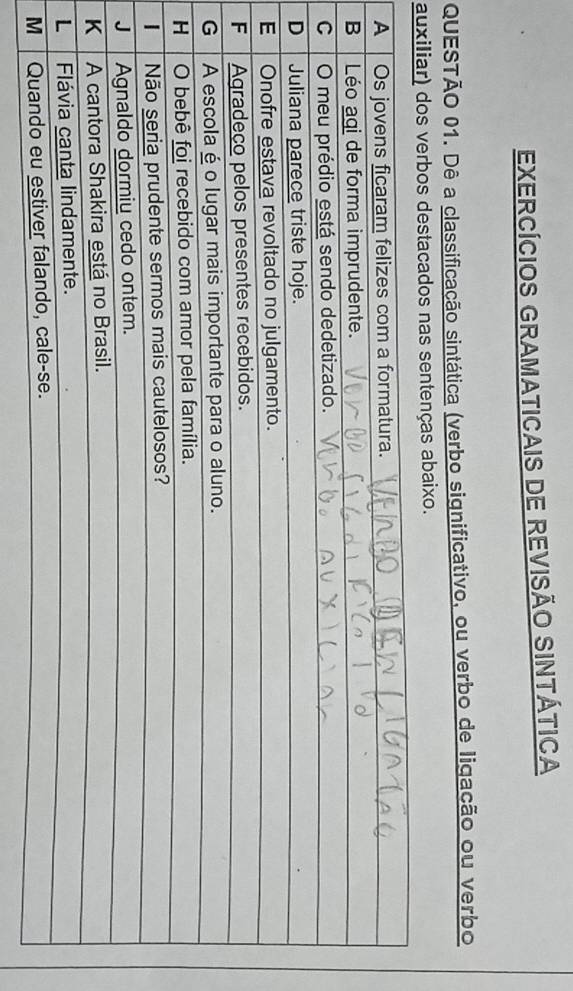 EXERCÍCIOS GRAMATICAIS DE REVISÃO SINTÁTICA
QUESTÃO 01. Dê a classificação sintática (verbo significativo, ou verbo de ligação ou verbo
auxiliar) dos verbos destacados nas sentenças abaixo.
A Os jovens ficaram felizes com a formatura. VERBO DE LIGAÇÃO
B Léo agi de forma imprudente. Verbo
C O meu prédio está sendo dedetizado. Verbo auxiliar
D Juliana parece triste hoje.
E Onofre estava revoltado no julgamento.
F Agradeço pelos presentes recebidos.
G A escola é o lugar mais importante para o aluno.
H O bebê foi recebido com amor pela família.
I Não seria prudente sermos mais cautelosos?
J Agnaldo dormiu cedo ontem.
K A cantora Shakira está no Brasil.
L Flávia canta lindamente.
M Quando eu estiver falando, cale-se.